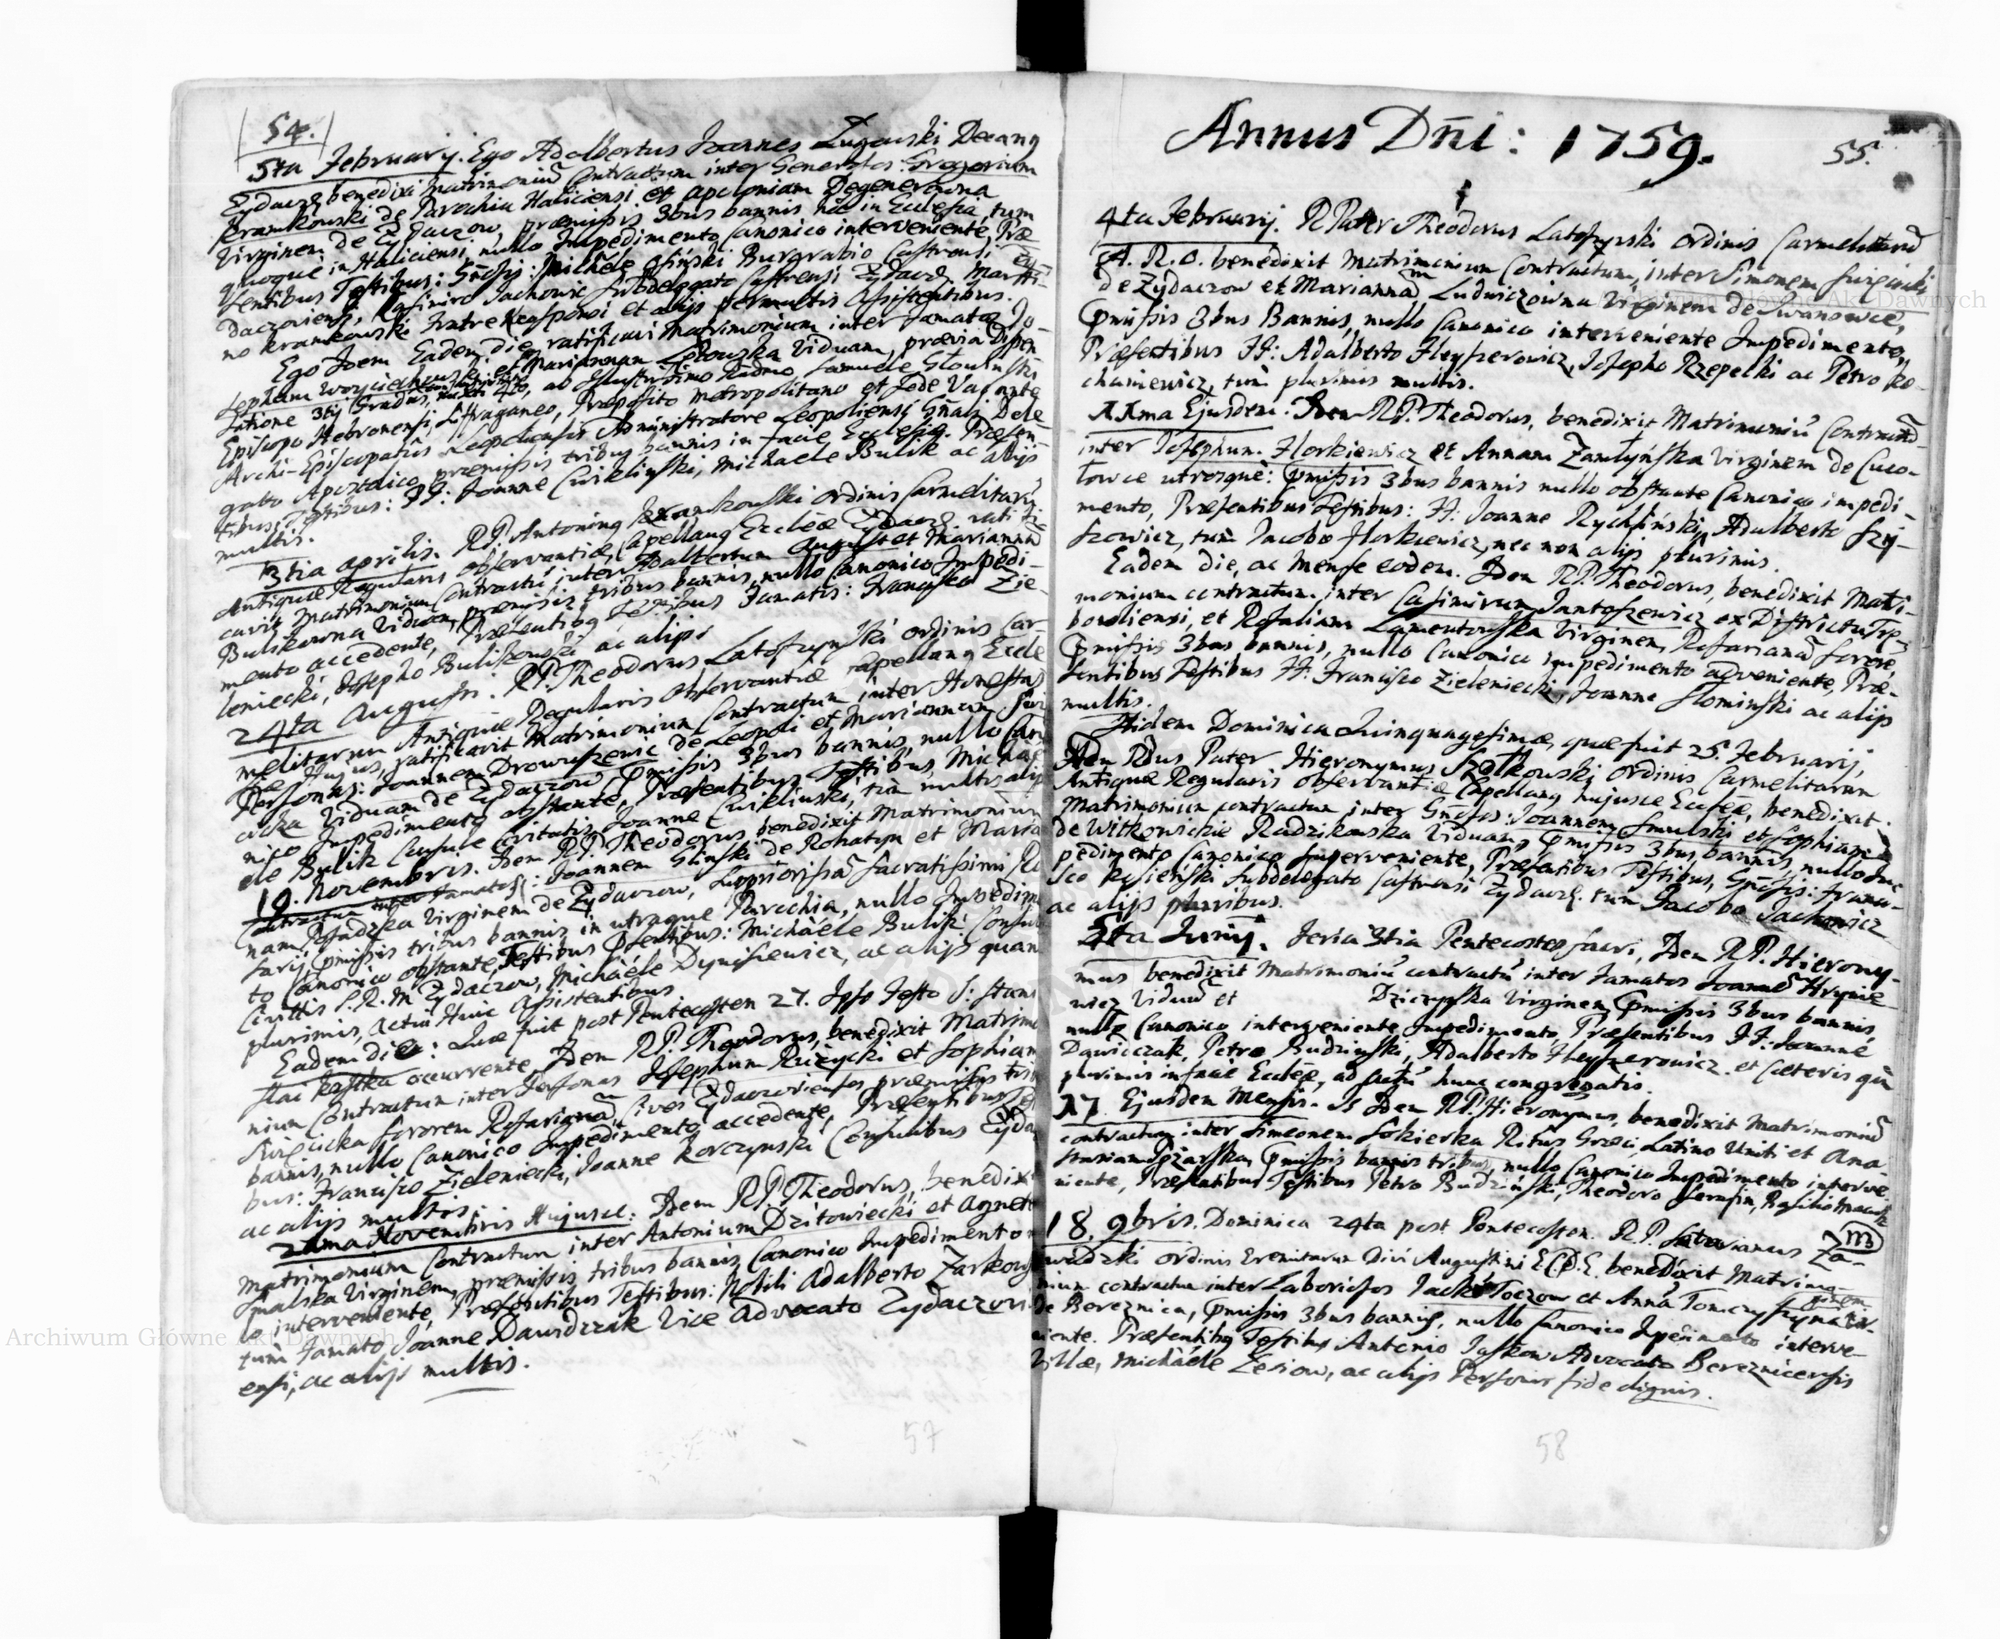 54.
5ta Februarij. Ego Adalbertus Joannes Ługowski Decang
Zydacz benedixi Matrimoniũ Contractum inter Generosos Gregorium
Krankowski de Parochia Haliciensi et apoloniam Degenerowna
Virginem de Zydaczow, præmissis 3bus bannis hic in Ecclesia, tum
quoque in Haliciensi, nullo Impedimento Canonico interveniente, Præ
sentibus Testibus: Gñosis: Michæle Osinski Burgrabio Castrensi
daczoviensi, Casimiro Jachowic Subdelegato Castrensi Zydacz, Marti-
no Krankowski Fratre Sponsi et alijs permultis Assistentibus.
Ego Idem Eadem die ratificavi Matrimonium inter Famatos Jo-
sephum Woyciechowski et Mariannam Viduam, prævia Dispen
satione 3tij Gradus, ab Illustrissimo Rndmo Samuele Głowinski
Episcopo Hebronensi, Suffraganeo, Præposito Metropolitano et Sede Vacante
Archi-Episcopatûs Leopoliensis Administratore Leopoliensi Gñali Dele
gato Apostolico, præmissis tribus bannis in facie Ecclesiæ. Præsen-
tibus Testibus: FF: Joanne Cwiklinski, Michaele Bulik ac alijs
multis.
3tia aprilis. RP: Antoninus Ordinis Carmelitarũ
Antiquæ Regularis observantiæ, Capellang Eccleæ Zydacz ratifi-
cavit Matrimonium Contractũ inter Adalbertum et Mariannã
Viduam, præmissis tribus bannis, nullo Canonico Impedi-
mento accedente, Præsentibus Testibus Famatis: Francisco Zie-
leniecki, Josepho Bulikowski ac alijs
24ta Augusti. RP: Theodorus Latoszynski ordinis Car
melitarum Antiquæ Regularis Observantiæ Capellang Eccle
siæ Hujus, ratificavit Matrimonium Contractum inter Honestas
Personas: Joannem Drowuszewic de Leopoli et Mariannam
Viduam de Zydaczow, Pmissis 3bus bannis, nullo Cano
nico Impedimento obstante, Præsentibus Testibus, Micha
ele Bulik Consule Civitatis, Joanne Cwiklinski, tũ multis alijs
19. Novembris. Idem RP: Theodorus benedixit Matrimonium
Contractum inter Famatos: Joannem Glinski de Rohatyn et Maria
nam Virginem de Zydaczow, Suppriorissã Sacratissimi Ro
sarij Pmissis tribus bannis in utraque Parochia, nullo Impedimen
to Canonico obstante, Testibus Psentibus: Michaële Bulik Consule
Civittis S.R.M. Zydaczow, Michaële Dynisiewicz, ac alijs quam
plurimis, actui Huic Assistentibus
Eadem Die: Quæ fuit post Pentecosten 27. Ipso Festo S. Stanis
slai Kostka occurrente Idem RP. Theodorus, benedixit Matrimo
nium Contractum inter Personas Josephum Ruzycki et Sophiam
Sororem Rosarianã, Cives Zydaczovienses præmissis tribus
bannis, nullo Canonico Impedimento accedente, Præsentibus Testi
bus: Francisco Zieleniecki, Joanne Korczynski Consulibus Zyda
ac alijs multis.
Novembris Hujusce: Idem RP: Theodorus, benedixit
Matrimonium Contractum inter Antonium Dzitowiecki et Agnetem
Smalska Virginem, præmissis tribus bannis Canonico Impedimento
lo interveniente, Præsentibus Testibus: Nobili Adalberto Zarkow
tum Famato, Joanne Dawidczak Vice Advocato Zydaczovi
ensi, ac alijs multis.
57
Annus Dñi: 1759.
55.
4ta Februarij. R Pater Theodorus Latoszynski ordinis Carmelitarũ
A. R. O. benedixit Matrimonium Contractum, inter Simonem
de Zydaczow et Mariannam Ludwiczowna Virginem de Iwanowce,
Pmissis 3bus Bannis, nullo Canonico interveniente Impedimento,
Præsentibus FF: Adalberto Heyszerowicz, Josepho Rzepecki ac Petro Ko-
chaniewicz, tum plurimis multis.
Ejusdem. Idem RP: Theodorus, benedixit Matrimoniũ Contractũ
inter Josephum Horkiewicz et Annam Virginem de Cuco-
łowce utrosque: Pmissis 3bus bannis nullo obstante Canonico impedi-
mento, Præsentibus Testibus: FF. Joanne Rychlinski, Adalberto Szy-
szowicz, tum Jacobo Horkiewicz, nec non alijs plurimis.
Eadem die, ac Mense eodem. Idem RP: Theodorus, benedixit Matri-
monium contractum inter Casimirum Jantoszewicz ex Districtu Trę-
bowliensi, et Rosaliam Lamentowska Virginem, Rosarianã Sororẽ,
Pmissis 3bus bannis, nullo Canonico impedimento adveniente, Præ-
sentibus Testibus FF. Francisco Zieleniecki, Joanne Słominski ac alijs
multis.
Itidem Dominica Quinquagesimæ, quæ fuit 25. Februarij,
Idem Rdus Pater Hieronymus Szołkowski Ordinis Carmelitarum
Antiquæ Regularis Observantiæ Capellang hujusce Eccleæ, benedixit
Matrimonium contractum inter Gñosos: Joannem Smulski et Sophiam
de Witkowickie Radzikowska Viduam, Pmissis 3bus bannis, nullo Im-
pedimento Canonico Interveniente, Præsentibus Testibus, Gñosis: Franci-
sco Subdelegato Castrensi Zydacz. tum Jacobo Jachowicz
ac alijs pluribus.
5ta Junij. Feria 3tia Pentecostes Sacri, Idem RP. Hierony-
mus benedixit Matrimoniũ contractũ inter Famatos Joannẽ Hrynie-
wicz Viduũ et Dziczynska Virginem, Pmissis 3bus bannis,
nullo Canonico interveniente Impedimento, Præsentibus FF: Joanne
Dawidczak, Petro Budzinski, Adalberto Heyszerowicz et Cæteris quã
plurimis in facie Eccleæ, ad Actũ hunc congregatis.
17. Ejusdem Mensis. Is Idem RP: Hieronymus, benedixit Matrimoniũ
contractum inter Simeonem Sokierka Ritus Græci, Latino Uniti et Ana-
stasiam Pmissis bannis tribus, nullo Canonico Impedimento interve-
niente, Præsentibus Testibus Petro Budzinski, Theodoro Serafin,
18. 9bris. Dominica 24ta post Pentecosten. R.P. Za-
wadzki ordinis Eremitarum Divi Augustini E.C.D.E. benedixit Matrimo-
nium contractum inter Laboriosos Toczow et Annã
de Bereznica, Pmissis 3bus bannis, nullo Canonico Impedimento interve-
niente. Præsentibus Testibus Antonio Jaskow Advocato Bereznicensis
Villæ, Michaële Zesiow, ac alijs Personis fide dignis.
58
Archiwum Główne Akt Dawnych
Archiwum Główne Akt Dawnych